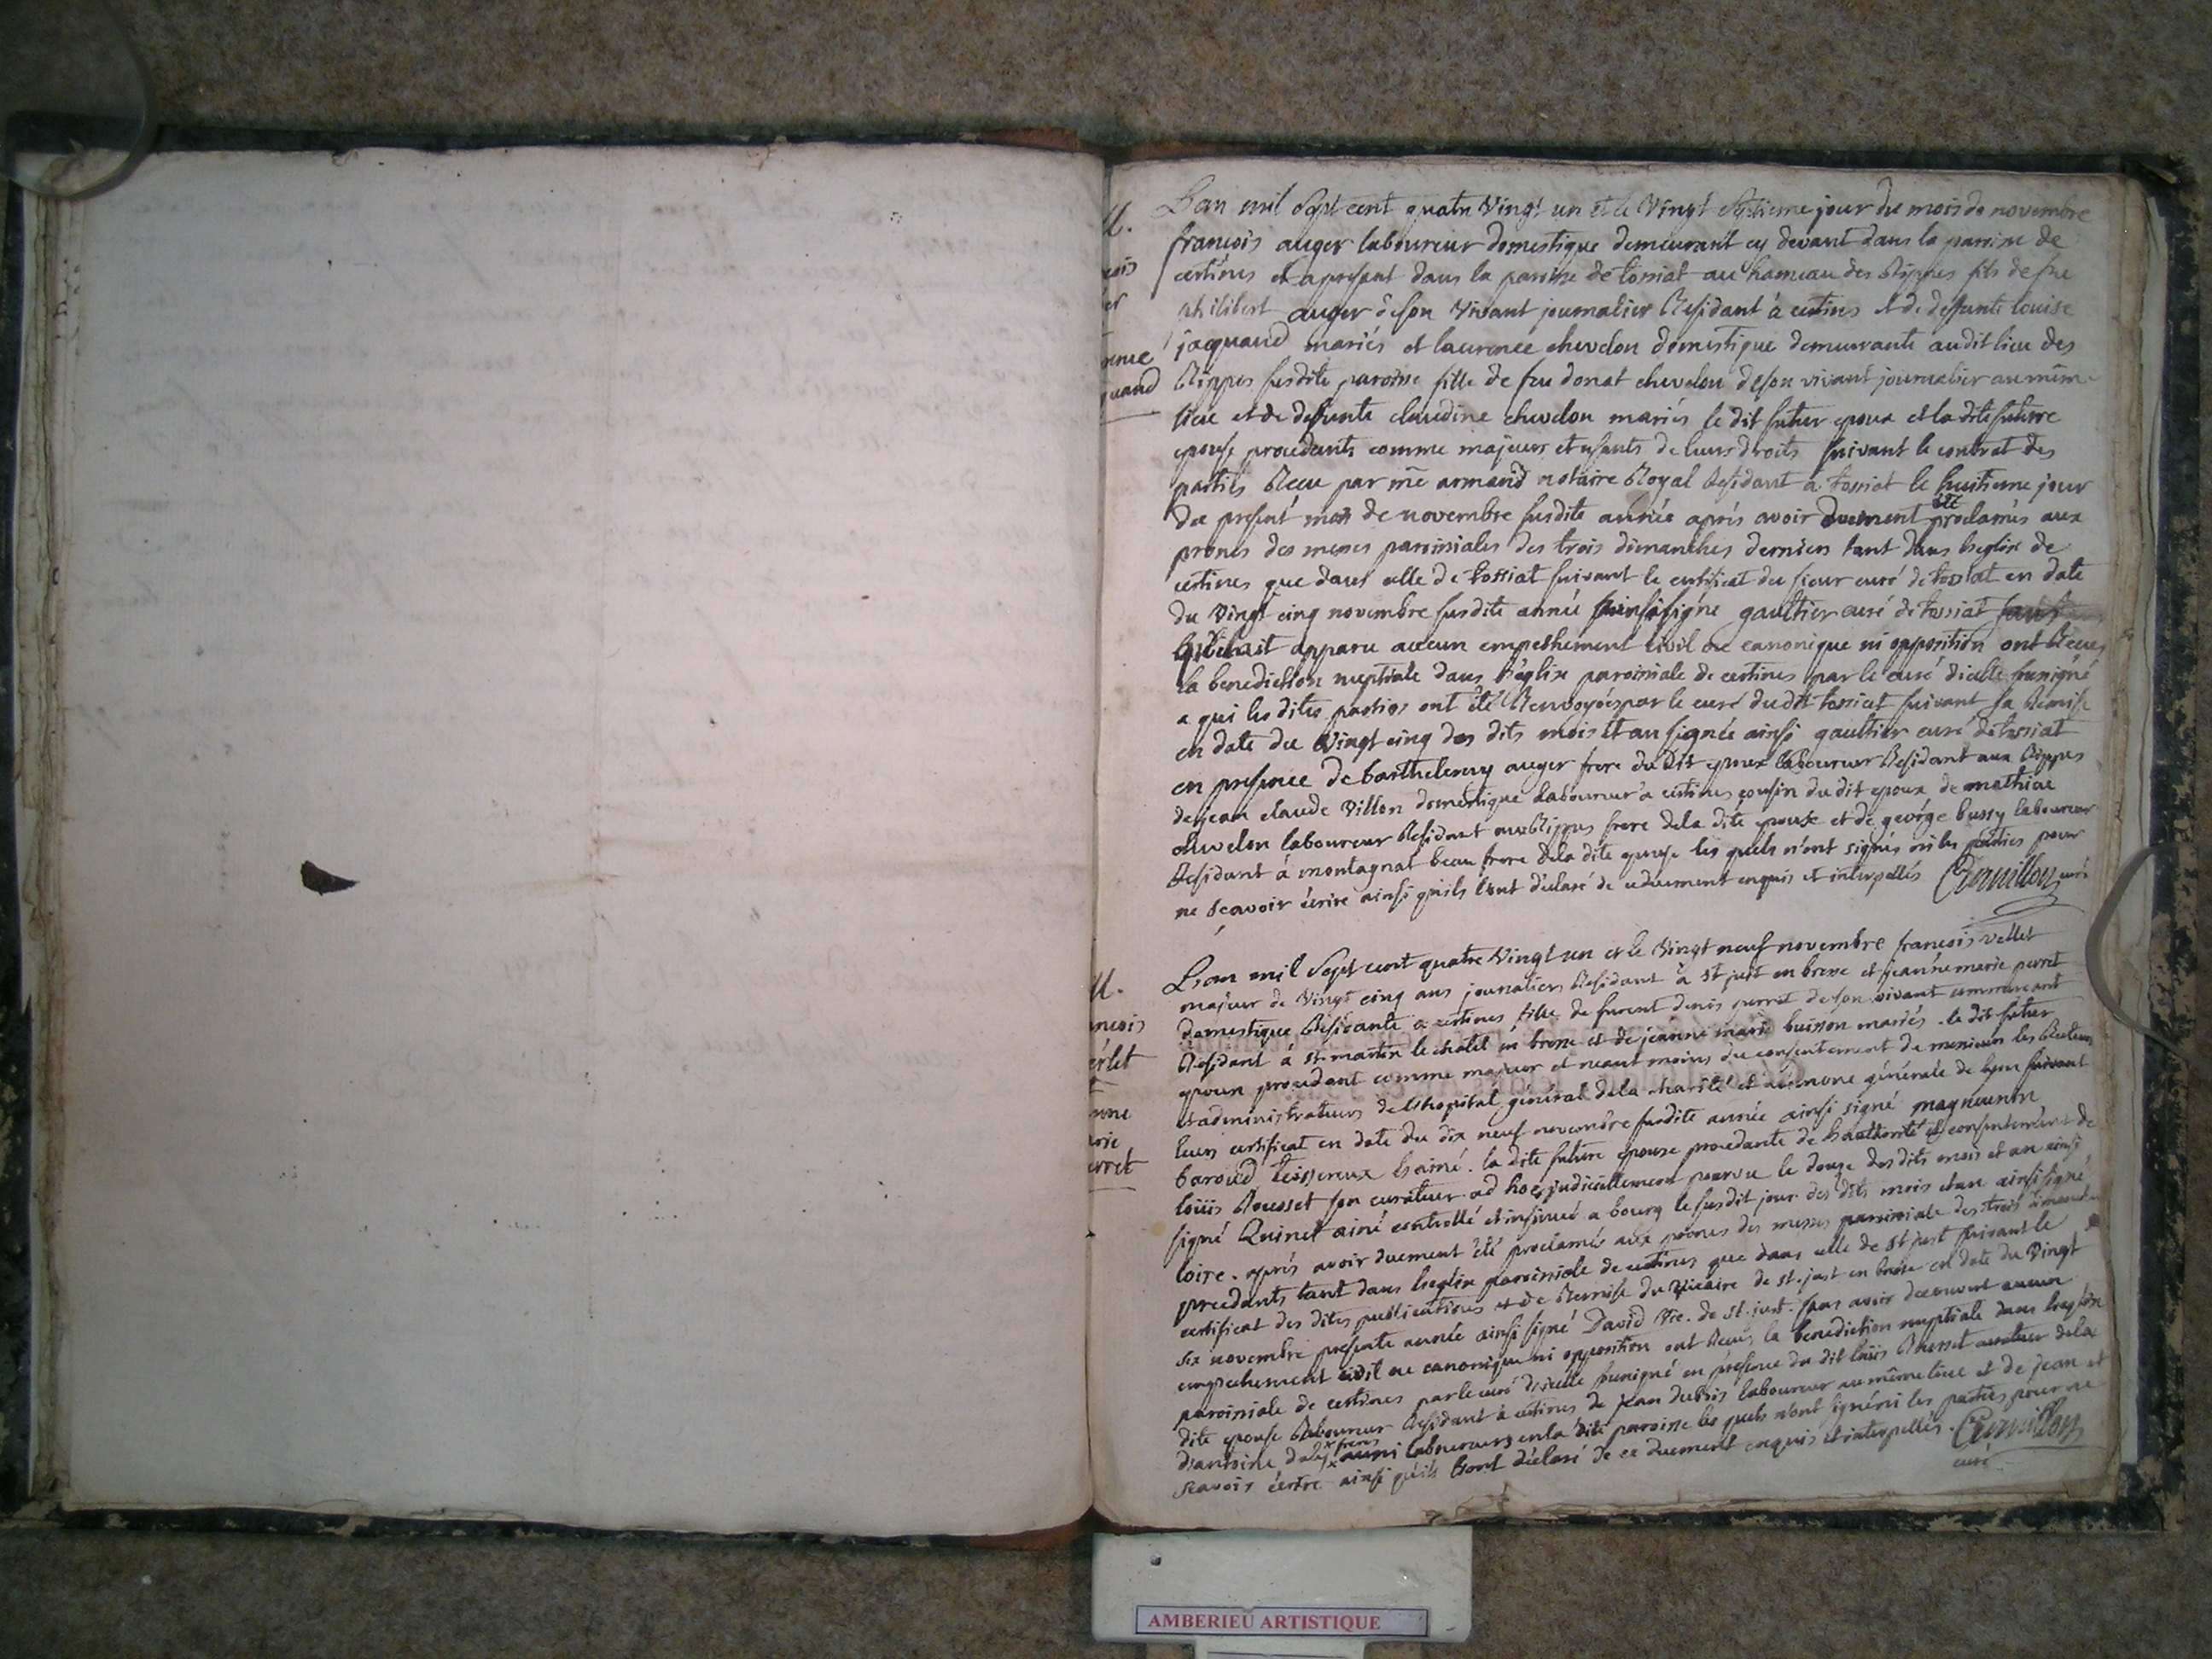 M.
Lan mil Sept cent quatre Vingt un et le Vingt Septieme jour du mois de novembre
françois auger laboureur domestique demeurant cy devant dans la paroisse de
certines et apresent dans la paroisse de tossiat au hameau des Rippes fils de feu
philibert auger de son vivant journalier Residant à certines et de deffunte louise
jaquand mariés et laurence chevelon domestique demeurante audit lieu des
Rippes susdite paroisse fille de feu donat chevelon de son vivant journalier au même
lieu et de deffunte claudine chevelon mariés le dit futur epoux et la dite future
epouse procedants comme majeurs et usants de leurs droits suivant le contrat des
parties Recu par me armand notaire Royal Residant a tossiat le huitieme jour
du present mois de novembre susdite année après avoir duement été proclamés aux
prones des messes paroissiales des trois dimanches derniers tant dans l'eglise de
certines que dans celle de tossiat suivant le certificat du sieur curé de tossiat en date
du Vingt cinq novembre susdite année signé gaultier curé de tossiat
apparu aucun empeschement civil ou canonique ni opposition ont Recus
la benediction nuptiale dans l'eglise paroissiale de certines par le curé d'icelle sousigné
a qui les dites parties ont été Renvoyées par le curé du dit tossiat suivant sa Remise
en date du Vingt cinq des dits mois et an signée ainsi gaultier curé de tossiat
en presence de barthelemy auger frere du dit epoux laboureur Residant aux Rippes
de jean claude Villon domestique laboureur a certines cousin du dit epoux de mathieu
chevelon laboureur Residant aux Rippes frere de la dite epouse et de george bussy laboureur
Residant à montagnat beau frere de la dite epouse les quels n'ont signés ni les parties pour
ne scavoir écrire ainsi qu'ils l'ont déclaré de ce duement enquis et interpellés curé
M.
Lan mil Sept cent quatre Vingt un et le Vingt neuf novembre françois vellet
majeur de Vingt cinq ans journalier Residant à st just en bresse et jeanne marie perret
domestique Residante a certines fille de furent denis perret de son vivant commercant
Residant à st. martin le chatel en bresse et de jeanne marie buisson mariés. le dit futur
epoux procedant comme majeur et neantmoins du consentement de messieurs les Recteurs
et administrateurs de l'hopital général de la charité et aumone générale de lyon suivant
leur certificat en date du dix neuf novembre susdite année ainsi signé
baroud l'ainé. la dite future epouse procedante de l'authorité et consentement de
loüis Rousset son curateur ad hoc judiciellement pourvu le douze des dits mois et an ainsi
signé Quinet ainé controllé et insinué a bourg le susdit jour des dits mois et an ainsi signé
loire. après avoir duement été proclamés aux prones des messes paroissiale des trois dimanches
precedants tant dans l'eglise paroissiale de certines que dans celle de st just suivant le
certificat des dites publications et de Remise du Vicaire de st. just en bresse en date du Vingt
six novembre presente année ainsi signé David Vic. de st. just. sans avoir decouvert aucun
empechement civil ou canonique ni opposition ont Recus la benediction nuptiale dans l'eglise
paroissiale de certines par le curé d'icelle sousigné en presence du dit loüis Rousset curateur de la
dite epouse laboureur Residant à certines de jean dubois laboureur au même lieu et de jean et
d'antoine freres aussi laboureurs en la dite paroisse les quels n'ont signé ni les parties pour ne
scavoir écrire ainsi qu'ils l'ont déclaré de ce duement enquis et interpellés.
curé
AMBERIEU ARTISTIQUE